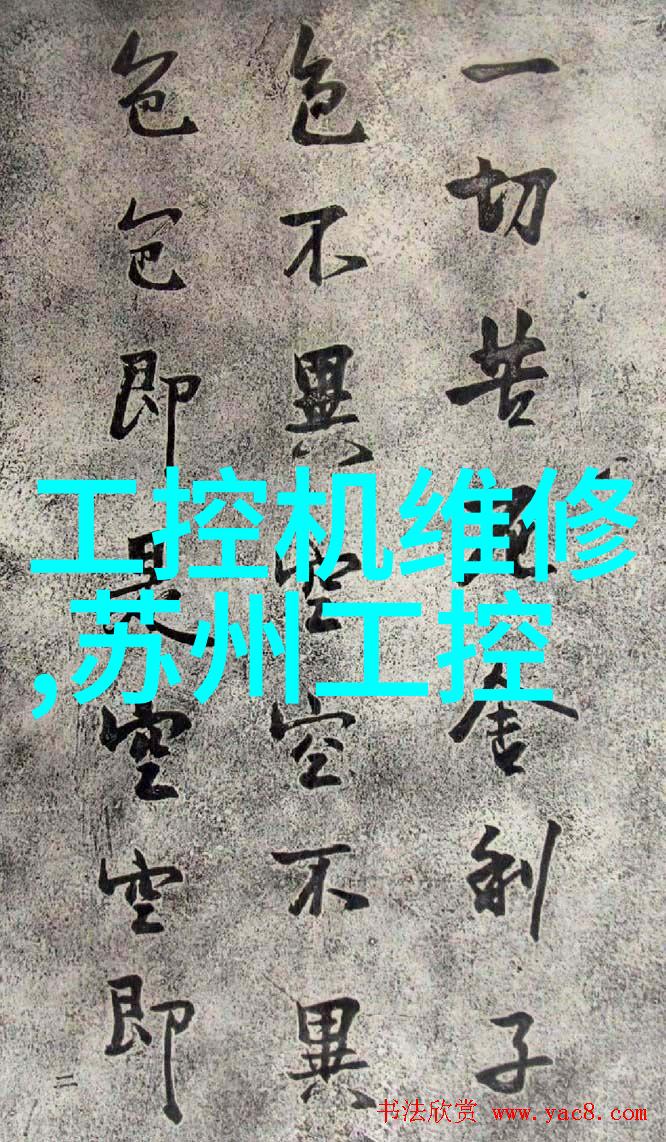 一切苦厄舍利子
色不異空空不異
色色即是空空即
二
工控机维修
,苏州工控
书法欣赏 www.yac8.com